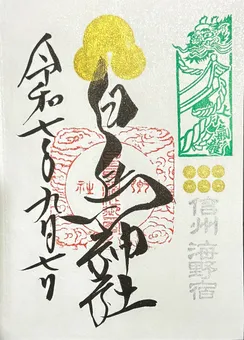 信州 海野宿
白鳥神社
令和七年九月七日